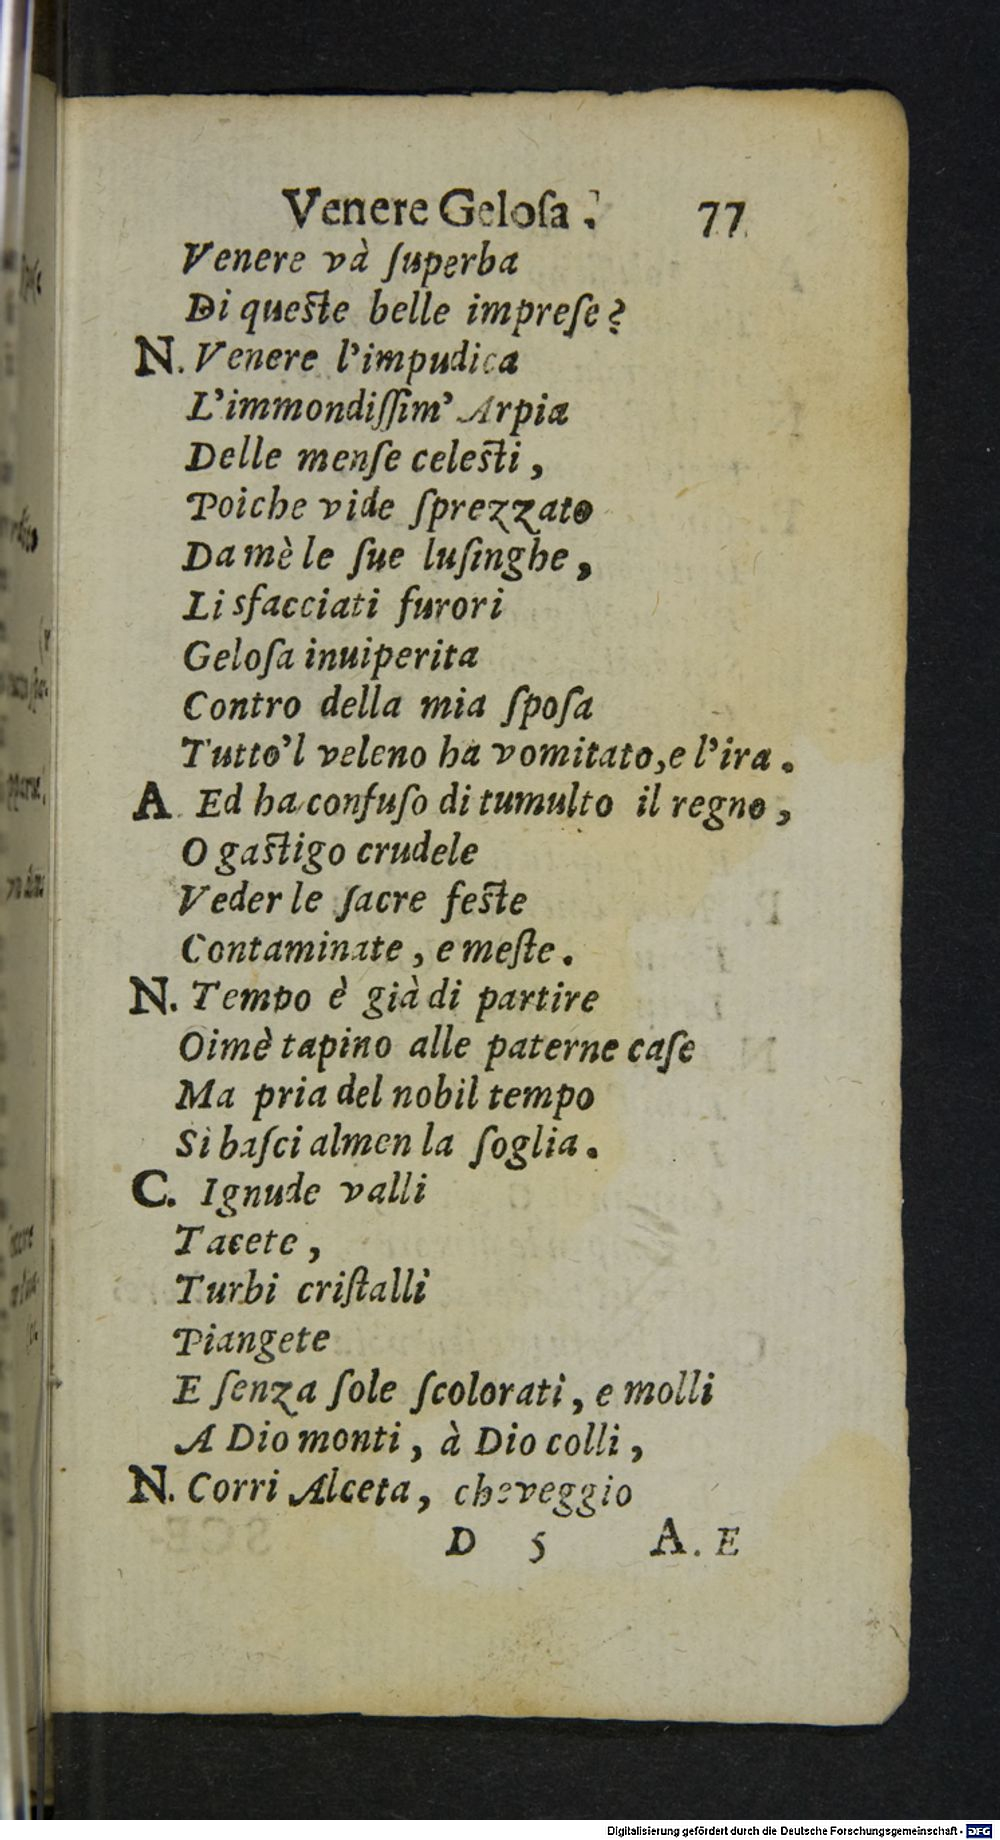 Venere Geloſa. 77
Venere và ſuperba
Di queſte belle impreſe?
N. Venere l'impudica
L'immondiſſim' Arpia
Delle menſe celeſti,
Poiche vide ſprezzato
Da mè le ſue luſinghe,
Li sfacciati furori
Geloſa inuiperita
Contro della mia ſpoſa
Tutto'l veleno ha vomitato, e l'ira.
A. Ed ha confuſo di tumulto il regno,
O gaſtigo crudele
Veder le ſacre feſte
Contaminate, e meſte.
N. Tempo è già di partire
Oimè tapino alle paterne caſe
Ma pria del nobil tempo
Si baſci almen la ſoglia.
C. Ignude valli
Tacete,
Turbi criſtalli
Piangete
E ſenza ſole ſcolorati, e molli
A Dio monti, à Dio colli,
N. Corri Alceta, che veggio
D 5 A. E
Digitalisierung gefördert durch die Deutsche Forschungsgemeinschaft - DFG